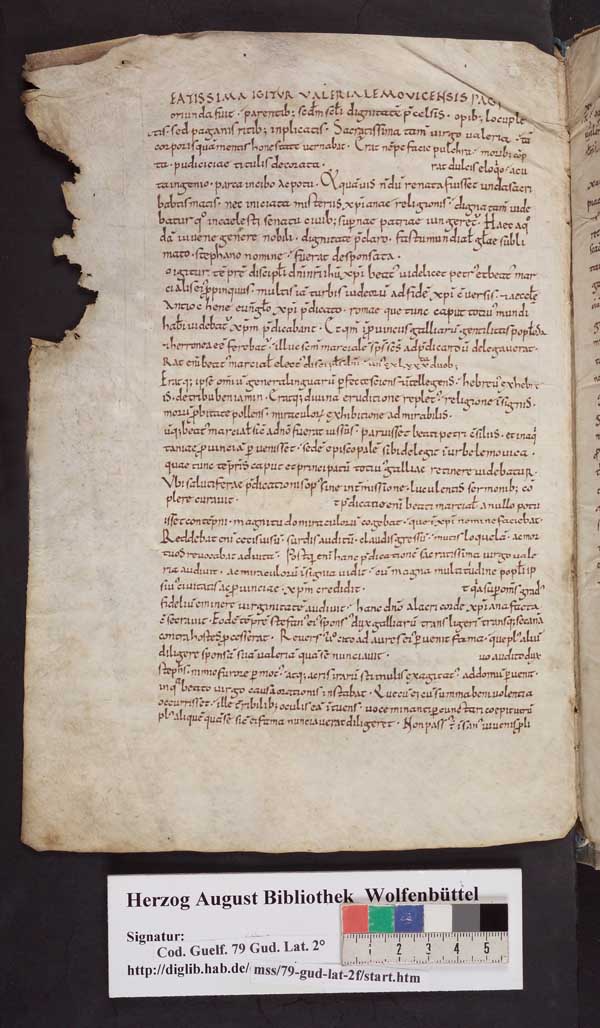 EATISSIMA IGITVR VALERIA LEMOVICENSIS PAG
oriunda fuit · parentib; sedm scli dignitatē p̄celsis · opib; locuple
tis · sed paganis ritib; inplicatis · Sacratissima tam̄ virgo valeria ·
corporis quā mentis honestate vernabat · Erat nēpe facie pulchra · morib; cōp
ta · pudiciciae titulis decorata · rat dulcis eloq̄o · acu
ta ingenio · parca in cibo ac potu · Quāuis ndū renata fuisset unda sacri
babtismatis · nec iniciata misteriis xp̄ianae religionis · digna tam̄ vide
batur q̄ in caelesti senatu ciuib; supnae patriae iungeret · Haec a q̄
dā iuuene genere nobili · dignitate p̄claro · fastu mundial glae subli
mato · stephano nomine · fuerat desponsata ·
o igitur tēpre discipli dni nri ihu xp̄i beat' videlicet petr' et beat' mar
cialis ei' ppinquus · multis iā turbis iudeorū ad fidē xp̄i cūersis ·
Antiochene euuglo xp̄i p̄dicato · romae que tunc caput toti' mundi
haberi videbat' xp̄m p̄dicabant · Et qm̄ in puinciis galliarū gentilitas pop̄l
in errore ferebat' · illuc scm̄ marciale ad p̄dicandū delegauerat ·
Rat eni beat' marcial
Erat q; ipse omiu general linguarū pfecte sciens · intellegens · hebreus ex hebre
is · de tribu beniamin · Erat q; diuina eruditione replet' · religione insignis
morū pbitate pollens · miraculorū exhibitione admirabilis ·
ū q; beat' marcial sic a dno fuerat iussus · paruisset beati petri csiliis · et in aq̄
taniae puincia puenisset · sede episcopale sibi delegit in urbe lemouica ·
quae tunc tepris caput et principatū toti' galliae retinere videbatur ·
Vbi salutiferae p̄dicationis op' sine intmissione · luculentis sermonib; cō
plere curauit · p̄dicatio eni beati marcial a nullo potu
isset contepni · magnitudo miraculorū cogebat · que in xp̄i nomine faciebat ·
Reddebat eni cecis uisū · surdis auditū · claudis gressū · mutis loquelā · ac mor
tuos reuocabat ad uitā · Postq̄ eni hanc p̄dicationē sacratissima virgo vale
ria audiuit · ac miraculorū insignia vidit · cū magna multitudine pop̄li ip
sius ciuitatis ac puinciae · xp̄m credidit ·
fideliū eminere virginitatē audiuit · hanc dno alacri corde xp̄iana facta
csecrauit · Eode tepre stefan' ei' spons' dux galliarū trans ligeri
contra hostes pcesserat · Reuers' cito ad aures ei' puenit fama · que pl' aliū
diligere sponsū sua valeria quā se nunciauit · uo audito dux
steph' nimio furore pmot' · atq; acris irarū stimulis exagitat' ad domū puenit ·
in q̄ beata virgo causa orationis instabat · Que cū ei cū summa beniuolentia
occurrisset · ille tribilib; oculis eā intuens · uoce minanti pcunctari coepit utrū
pl' aliquē quā se sic ei fama nunciauerat diligeret · Non pass'
Herzog August Bibliothek Wolfenbüttel
Signatur:
Cod. Guelf. 79 Gud. Lat. 2°
http://diglib.hab.de/ mss/79-gud-lat-2f/start.htm
1 2 3 4 5